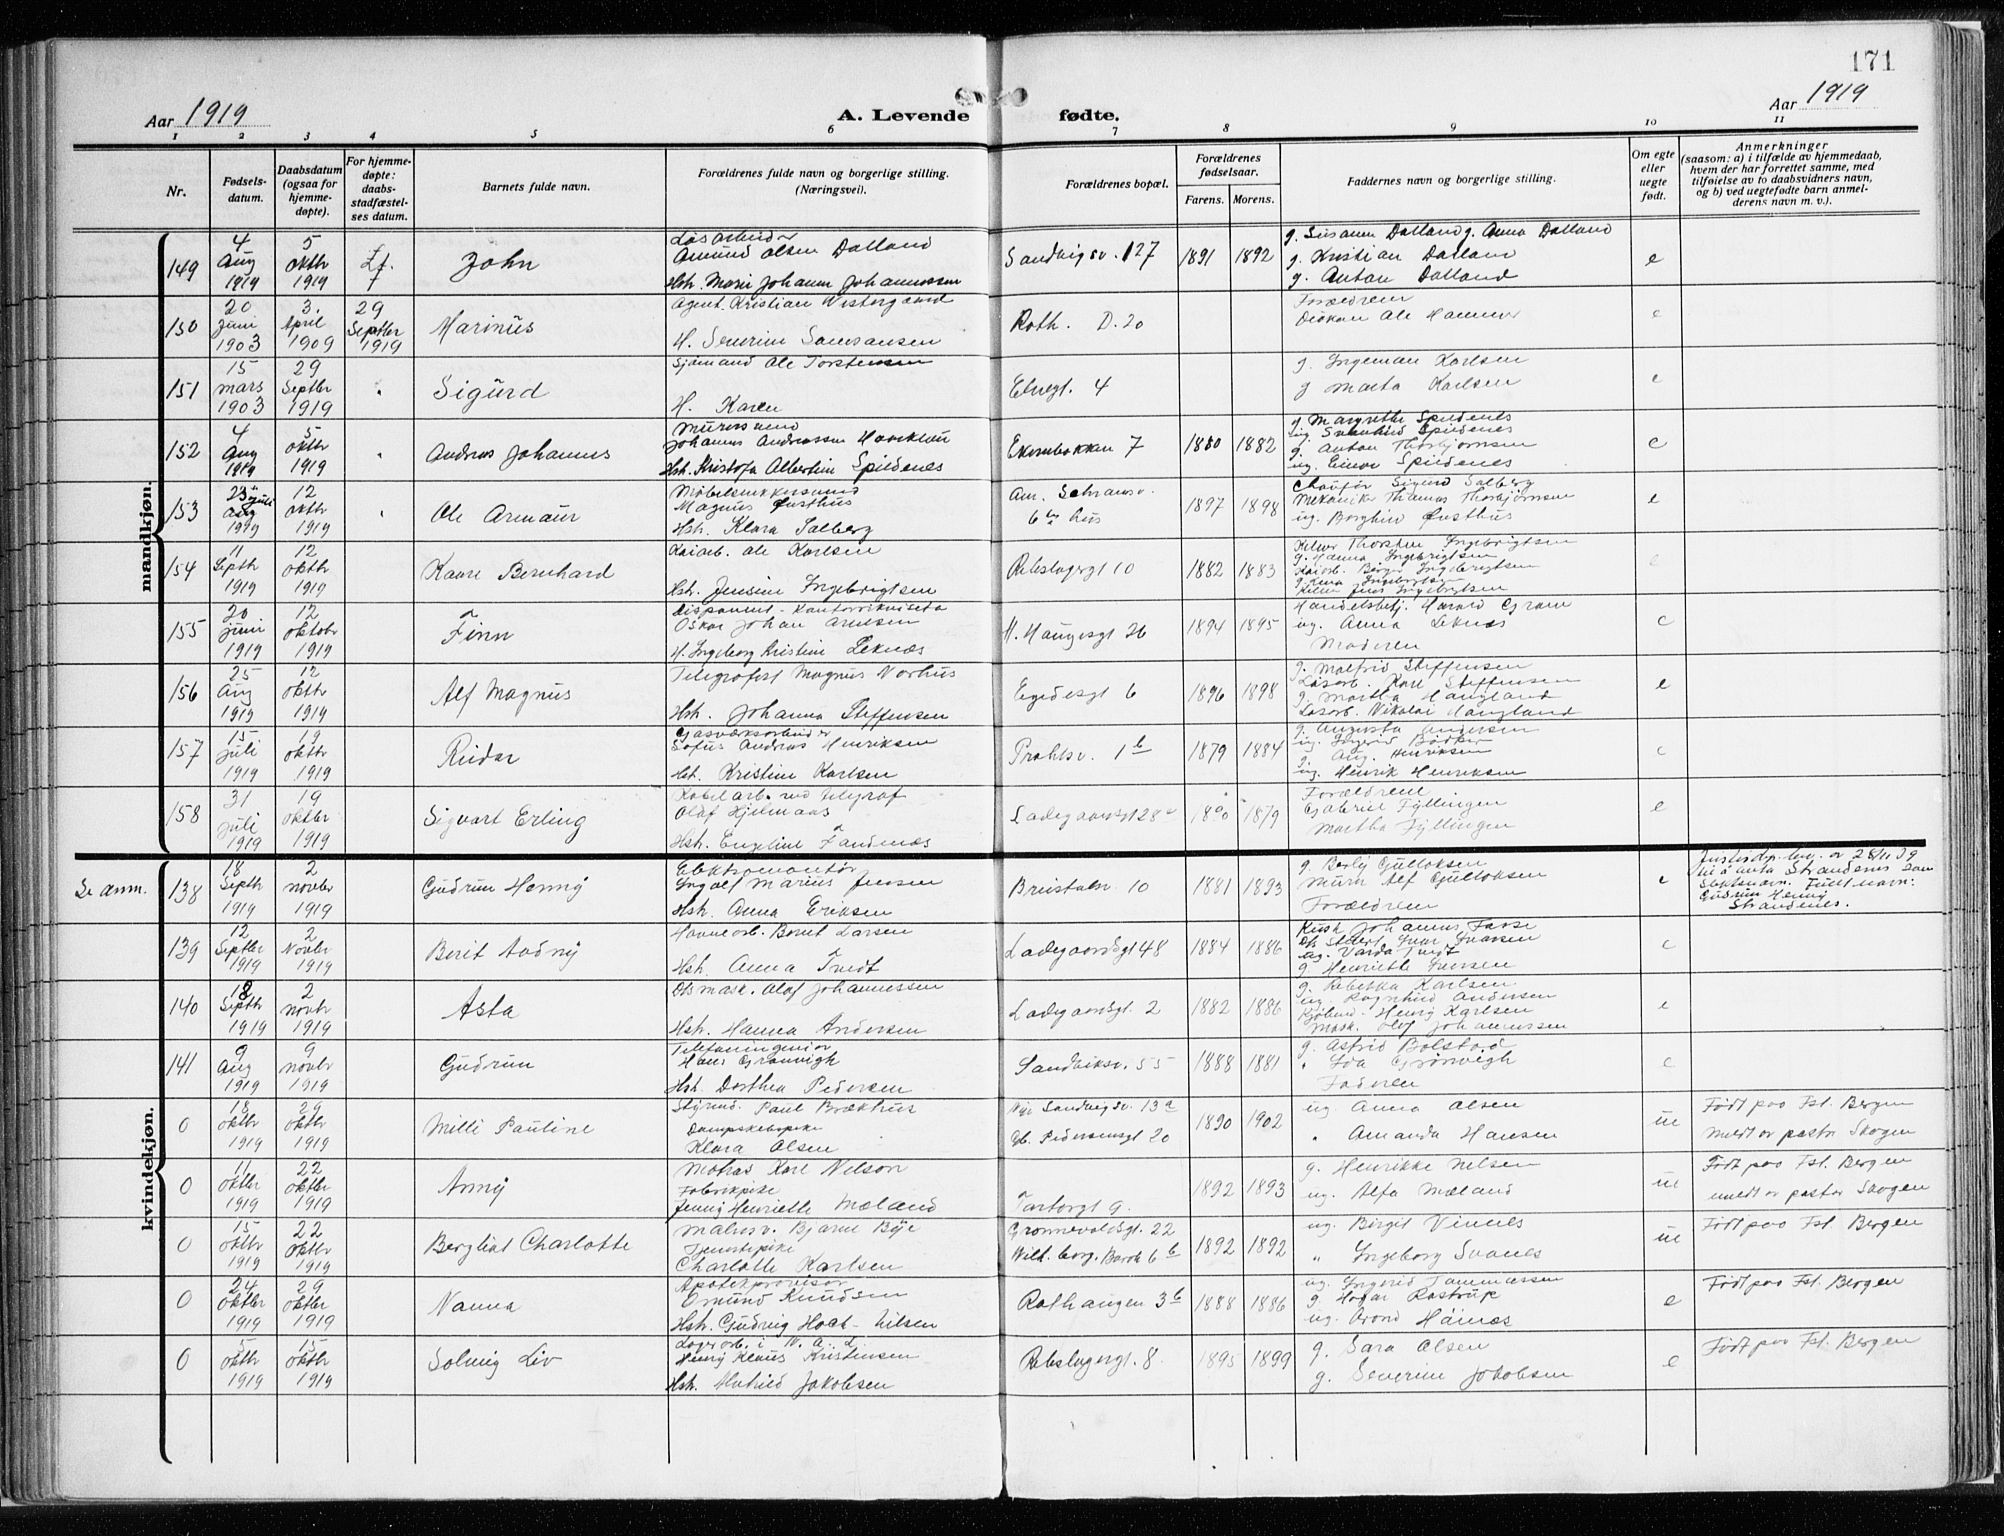 171
Aar 1919
A. Levende
fødte.
Aar 1919
1 2 3 4 5 6 7 8 9 10 11
Nr.
Fødsels-
datum.
Daabsdatum
(ogsaa for
hjemme-
døpte).
For hjemme-
døpte:
daabs-
stadfæstel-
ses datum.
Barnets fulde navn.
Forældrenes fulde navn og borgerlige stilling.
(Næringsvei).
Forældrenes bopæl.
Forældrenes
fødselsaar.
Farens. Morens.
Faddernes navn og borgerlige stilling.
Om egte
eller
uegte
født.
Anmerkninger
(saasom: a) i tilfælde av hjemmedaab,
hvem der har forrettet samme, med
tilføielse av to daabsvidners navn,
og b) ved uegtefødte barn anmel-
derens navn m. v.).
mandkjøn.
149
4 Aug 1919
5 oktbr 1919
John
Løsarbeider
Amund Olsen Datland
Hst. Marie Johanne Johannessen
Sandvigsv. 127
1891 1892
g. Susanne Datland g. Anna Datland
g. Kristian Datland
g. Anton Datland
e
150
20 Juni 1903
3. April 1909
29 Septbr 1919
Marinus
Agent Kristian Vestergaard
H. Severine Samsonsen
Roth. D. 20
Forældrene
Diakon Ole Hammer
e
151
15 mars 1903
29 Septbr 1919
Sigurd
Sjømand Ole Torstensen
H. Karen
Elvegt. 4
g. Ingeman Karlsen
g Marta Karlsen
e
152
4 Aug 1919
5 oktbr 1919
Andreas Johannes
Murersvend
Johannes Andreassen
Hst. Kristofa Albertine Spildenes
7
1880 1882
g. Margrethe Spildenes
Spildenes
g. Anton Thorbjørnsen
ug. Einar Spildenes
e
153
23 juli 1919
12 oktbr 1919
Ole Armaur
Møbelsnekkersvend
Magnus Østhus
Hst. Klara Salberg
6te hus
1897 1898
Chauffør Sigurd Salberg
Mekaniker Thomas Thorbjørnsen
ug. Borghild Østhus
e
154
11 Septbr 1919
12 oktbr 1919
Kaare Bernhard
Kaiarb. Ole Karlsen
Hst. Jensine Ingebrigtsen
Rebslagergt 10
1882 1883
Thorsten Ingebrigtsen
g. Hanna Ingebrigtsen
Kaiarb. Birger Ingebrigtsen
g. Ingebrigtsen
Jens Ingebrigtsen
e
155
20 juni 1919
12 oktobr 1919
Finn
Disponent
Oskar Johan Arnesen
H. Ingeborg Kristine Leknæs
H. Haugesgt 26
1894 1895
Handelsbetj. Harald Gram
ug. Anna Leknæs
Moderen
e
156
25 Aug 1919
12 oktbr 1919
Alf Magnus
Telegrafist Magnus Norhus
Hst. Johanna Steffensen
Egedesgt 6
1896 1898
g. Malfrid Steffensen
Løsarb. Karl Steffensen
g. Martha Haugland
Løsarb. Nikolai Haugland
e
157
15 juli 1919
19 oktbr 1919
Reidar
Gasværksarbeider
Sofus Andreas Henriksen
Hst. Kristine Karlsen
Prahlsv. 1 b
1879 1884
g. Augusta Andersen
ug. Ingrid Bødker
g. Aug. Henriksen
ug. Henrik Henriksen
e
158
31 juli 1919
19 oktbr 1919
Sigvart Erling
Kabelarb. ved telegraf
Olaf Hjelmaas
Hst. Engeline Sandenæs
Ladegaardsgt 28 a
1880 1879
Forældrene
Gabriel Fyllingen
Martha Fyllingen
e
kvindekjøn.
Se anm.
138
18 Septbr 1919
2 novbr 1919
Gudrun Henny
Elektromontør
Ingolf Marius Jensen
Hst. Anna Eriksen
Bristolsv. 10
1881 1893
g. Berly Gulloksen
Murer Alf Gulloksen
Forældrene
e
Justisdp. bev. av 28/11 39
til å anta Strandenes som
Slektsnavn. Fullt navn:
Gudrun Henny
Strandenes.
139
12 Septbr 1919
2 Novbr 1919
Berit Aadny
Havnearb. Bernt Larsen
Hst. Anna Tvedt
Ladegaardsgt 48
1884 1886
Kusk Johannes Fosse
Ivar Ivarsen
ug. Varda Tvedt
g. Henriette Iversen
e
140
18 Septbr 1919
2 novbr 1919
Asta
Dsmask. Olaf Johannessen
Hst. Hanna Andersen
Ladegaardsgt. 2
1882 1886
g. Rebekka Karlsen
ug. Ragnhild Andersen
Henry Karlsen
Mask. Olaf Johannessen
e
141
9 Aug 1919
9 novbr 1919
Gudrun
Telefoningeniør
Hans Grønvigh
Hst. Dorthea Pedersen
Sandviksv. 55
1888 1881
g. Astrid Bolstad
" Ida Grønvigh
Faderen
e
0
18 oktbr 1919
29 oktbr 1919
Milli Pauline
Styrmd. Paul Brækhus
Dampskibspike
Klara Olsen
Nye Sandvigsv. 13 a
Gb. Pedersensgt 20
1890 1902
ug. Anna Olsen
" Amanda Hansen
ue
Født paa Fst. Bergen
meldt av pastor Skogen
0
11 oktbr 1919
22 oktbr 1919
Anny
Matros Karl Nilson
Fabrikpike
Jenny Henriette Mæland
Tartargt 9.
1892 1893
g. Henrikke Nelsen
ug. Alfa Mæland
ue
Født paa Fst. Bergen
meldt av pastor Skogen
0
15 oktbr 1919
22 oktbr 1919
Bergliot Charlotte
Malersv. Bjarne Bye
Tjenestepike
Charlotte Karlsen
Grønnevoldsgt. 22
6 b
1892 1892
ug. Birgit Vinnes
" Ingeborg Svanes
ue
Født paa Fst. Bergen
0
24 oktbr 1919
29 oktbr 1919
Nanna
Apotekprovisor
Omund Knudsen
Hst. Gudvig Hoct-Nilsen
Rothaugen 3 b
1888 1886
ug. Ingerid Tommassen
g. Hagar Rostrup
ug. Arond Høines
e
Født paa Fst. Bergen
0
5 oktbr 1919
15 oktbr 1919
Solveig Liv
Lagerarb. i N. A. L.
Henry Klaus Kristensen
Hst. Jakobsen
Rebslagergt. 8
1895 1899
g. Sara Olsen
g. Severine Jakobsen
e
Født paa Fst. Bergen